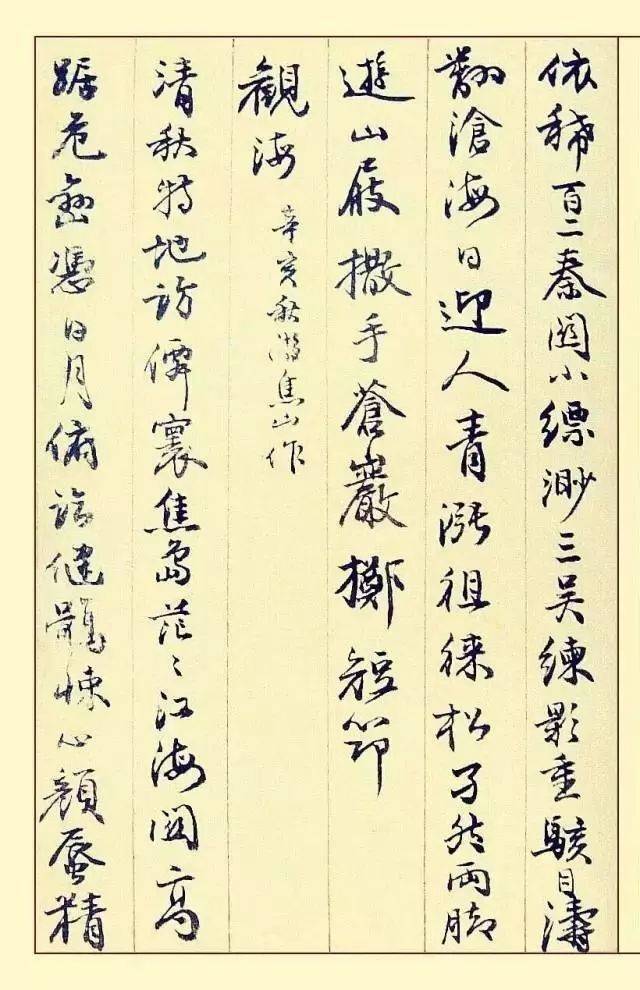 依稀百二秦關小縹渺三吴練影重駭目濤
翻滄海日迎人青漲徂徠松孑然兩脚
遊山屐撒手蒼巖擲短筇
觀海 辛亥秋游焦山作
清秋特地訪僊寰焦島茫々江海関高
踞危巒憑日月俯臨健鶻悚心顔蜃精